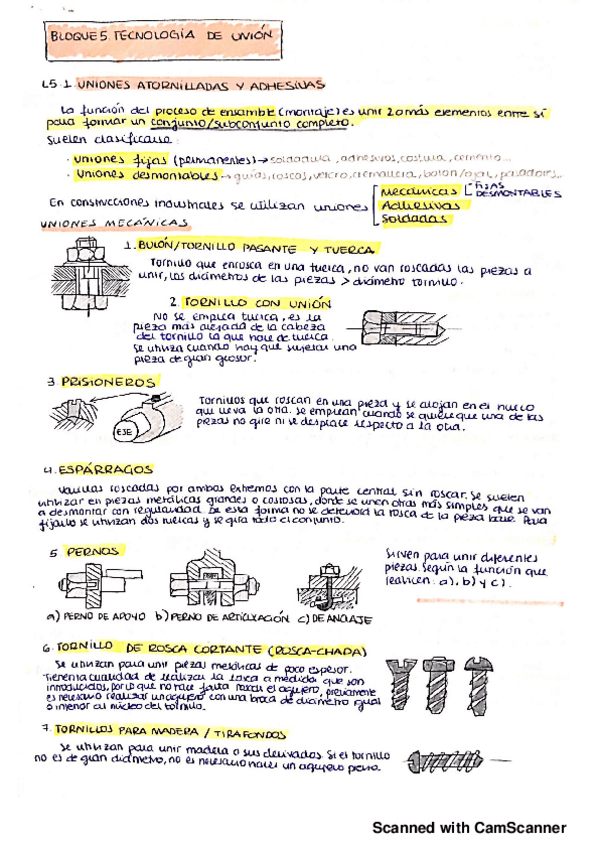 BLOQUE 5. TECNOLOGÍA DE UNIÓN
L5.1. UNIONES ATORNILLADAS Y ADHESIVAS
La función del proceso de ensamble (montaje) es unir 2 o más elementos entre sí
para formar un conjunto/subconjunto completo.
Suelen clasificarse:
· Uniones fijas (permanentes) → soldadura, adhesivos, costura, cemento...
· Uniones desmontables → guías, roscas, velcro, cremallera, botón/ojal, pasadores...
En construcciones industriales se utilizan uniones
Mecánicas
FIJAS
DESMONTABLES
Adhesivas
Soldadas
UNIONES MECÁNICAS
1. BULÓN/TORNILLO PASANTE Y TUERCA
Tornillo que enrosca en una tuerca, no van roscadas las piezas a
unir, los diámetros de las piezas > diámetro tornillo.
2. TORNILLO CON UNIÓN
No se emplea tuerca, es la
pieza más alejada de la cabeza
del tornillo la que hace de tuerca.
Se utiliza cuando hay que sujetar una
pieza de gran grosor.
3. PRISIONEROS
Tornillos que roscan en una pieza y se alojan en el hueco
que lleva la otra. Se emplean cuando se quiere que una de las
piezas no gire ni se desplace respecto a la otra.
EJE
4. ESPÁRRAGOS
Varillas roscadas por ambos extremos con la parte central sin roscar. Se suelen
utilizar en piezas metálicas grandes o costosas, donde se unen otras más simples que se van
a desmontar con regularidad. De esta forma no se deteriora la rosca de la pieza base. Para
fijarlo se utilizan dos tuercas y se gira todo el conjunto.
5. PERNOS
Sirven para unir diferentes
piezas según la función que
realicen: a), b) y c).
a) PERNO DE APOYO b) PERNO DE ARTICULACIÓN c) DE ANCLAJE
6. TORNILLO DE ROSCA CORTANTE (ROSCA-CHAPA)
Se utilizan para unir piezas metálicas de poco espesor.
Tienen la cualidad de realizar la rosca a medida que son
introducidos, por lo que no hace falta roscar el agujero, previamente
es necesario realizar un agujero con una broca de diámetro igual
o inferior al núcleo del tornillo.
7. TORNILLOS PARA MADERA / TIRAFONDOS
Se utilizan para unir madera o sus derivados. Si el tornillo
no es de gran diámetro, no es necesario hacer un agujero previo.
Scanned with CamScanner